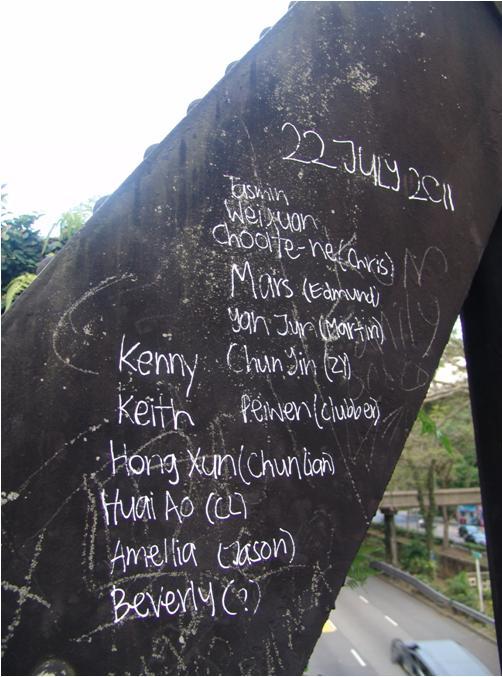 22 JULY 2011
Jasmin
Weixuan
(Chris)
Mars (Edmund)
Yan Jun (Martin)
Kenny
Chun Yin (ZY)
Keith
Peiwen (clubber)
Hong Xun (Chunlian)
Huai Ao (CL)
Amellia (Jason)
Beverly (?)